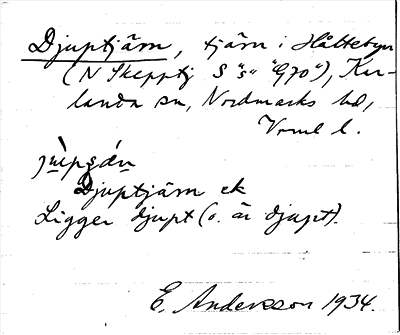 Djuptjärn, tjärn i Håltebyn
(N Skepptj S "s" "G70"), Kar-
landa sn, Nordmarks hd,
Vrml l.
Djuptjärn ek
Ligger djupt (o. är djupt).
E. Andersson 1934.